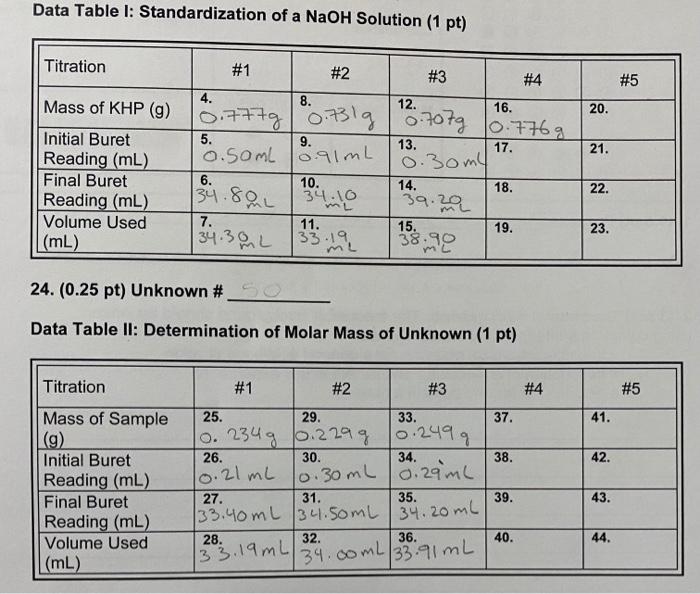 Data Table I: Standardization of a NaOH Solution (1 pt)
Titration #1 #2 #3 #4 #5
Mass of KHP (g) 4. 0.777g 8. 0.731g 12. 0.707g 16. 0.776g 20.
Initial Buret Reading (mL) 5. 0.50mL 9. 0.91mL 13. 0.30mL 17. 21.
Final Buret Reading (mL) 6. 34.80mL 10. 34.10mL 14. 39.20mL 18. 22.
Volume Used (mL) 7. 34.30mL 11. 33.19mL 15. 38.90mL 19. 23.
24. (0.25 pt) Unknown # 50
Data Table II: Determination of Molar Mass of Unknown (1 pt)
Titration #1 #2 #3 #4 #5
Mass of Sample (g) 25. 0.234g 29. 0.229g 33. 0.249g 37. 41.
Initial Buret Reading (mL) 26. 0.21mL 30. 0.30mL 34. 0.29mL 38. 42.
Final Buret Reading (mL) 27. 33.40mL 31. 34.50mL 35. 34.20mL 39. 43.
Volume Used (mL) 28. 33.19mL 32. 34.00mL 36. 33.91mL 40. 44.